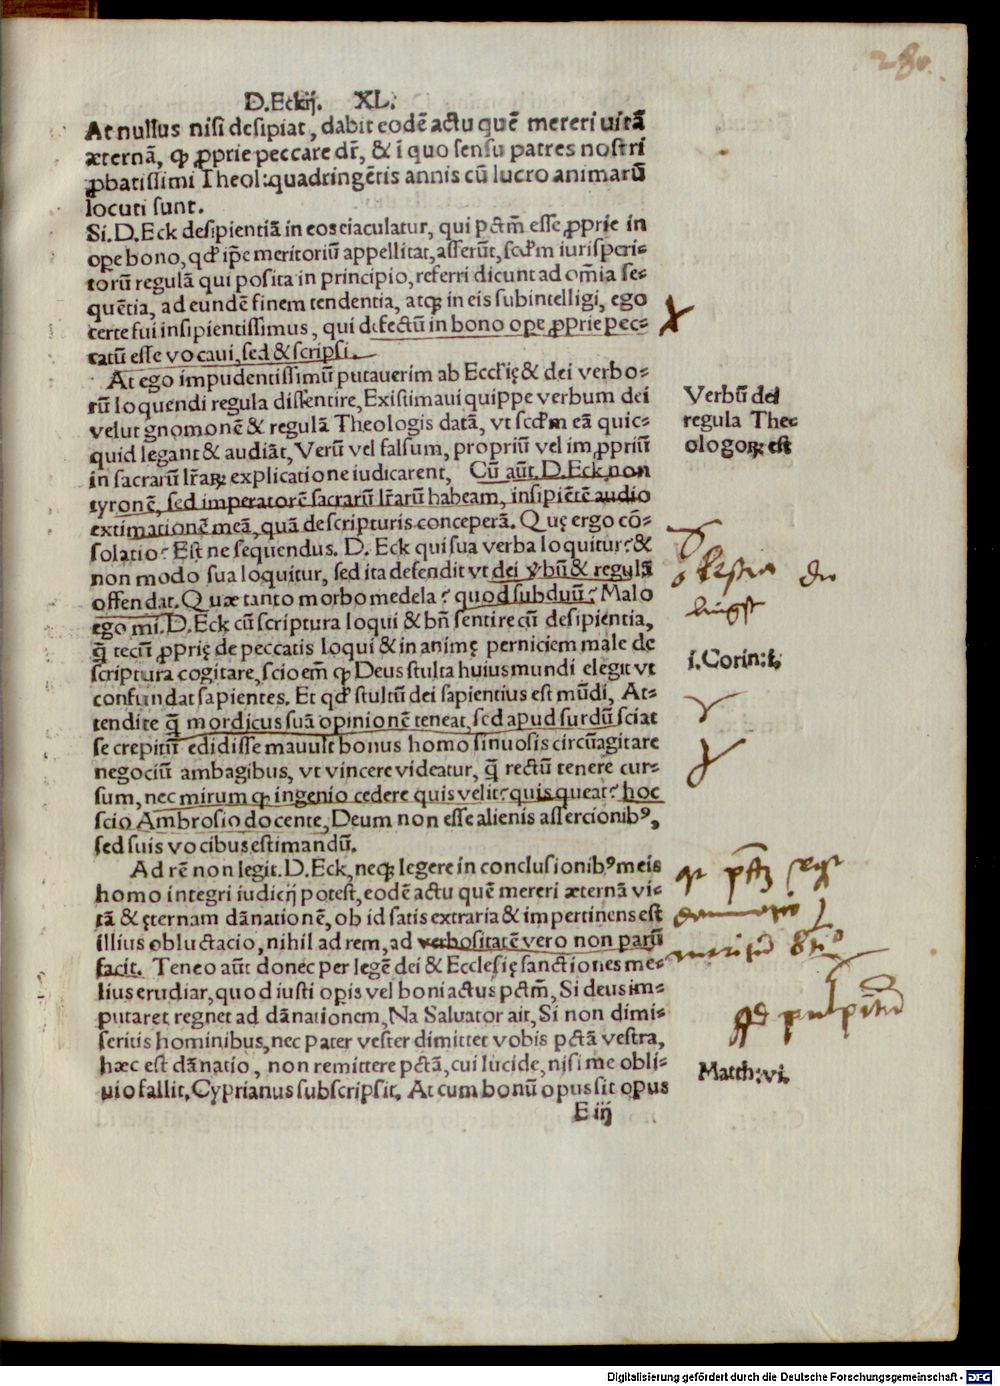 D.Eckij. XL.
At nullus nisi desipiat, dabit eodē actu quē mereri uitā
æternā, ꝙ ꝓprie peccare dr̄, & ī quo sensu patres nostri
ꝓbatissimi Theol:quadringētis annis cū lucro animarū
locuti sunt.
Si.D.Eck desipientiā in eos eiaculatur, qui pctm̄ esse ꝓprie in
ope bono, qd' ip̄e meritoriū appellitat, asserūt, scd'm iurisperi-
torū regulā qui posita in principio, referri dicunt ad om̄ia se-
quētia, ad eundē finem tendentia, atqꝫ in eis subintelligi, ego
certe fui insipientissimus, qui defectū in bono ope ꝓprie pec-
catū esse vocaui, sed & scripsi.
At ego impudentissimū putauerim ab Eccl'ię & dei verbo-
rū loquendi regula dissentire, Existimaui quippe verbum dei
velut gnomonē & regulā Theologis datā, vt scd'm eā quic-
quid legant & audiāt, Verū vel falsum, propriū vel imꝓpriū
in sacrarū lr̄aꝝ explicatione iudicarent, Cū aūt.D.Eck non
tyronē, sed imperatorē sacrarū lr̄arū habeam, insipiētē audio
extimationē meā, quā de scripturis conceperā. Quę ergo cō-
solatio? Est ne sequendus. D. Eck qui sua verba loquitur? &
non modo sua loquitur, sed ita defendit vt dei v̄bū & regulā
offendat. Quæ tanto morbo medela? quod subduū? Malo
ego mi.D.Eck cū scriptura loqui & bn̄ sentire cū desipientia,
q̄ tecū ꝓprię de peccatis loqui & in animę perniciem male de
scriptura cogitare, scio em̄ ꝙ Deus stulta huius mundi elegit vt
confundat sapientes. Et qd' stultū dei sapientius est mūdi, At-
tendite q̄ mordicus suā opinionē teneat, sed apud surdū sciat
se crepitū edidisse mauult bonus homo sinuosis circūagitare
negociū ambagibus, vt vincere videatur, q̄ rectū tenere cur-
sum, nec mirum ꝙ ingenio cedere quis velit? quis queat? hoc
scio Ambrosio docente, Deum non esse alienis assercionibꝰ,
sed suis vocibus estimandū.
Ad rē non legit.D.Eck, neqꝫ legere in conclusionibꝰ meis
homo integri iudicij potest, eodē actu quē mereri æternā vi-
tā & ęternam dānationē, ob id satis extraria & impertinens est
illius obluctacio, nihil ad rem, ad verbositatē vero non parū
facit. Teneo aūt donec per legē dei & Ecclesię sanctiones me-
lius erudiar, quod iusti opis vel boni actus pctm̄, Si deus im-
putaret regnet ad dānationem, Na Saluator ait, Si non dimi-
seritis hominibus, nec pater vester dimittet vobis pctā vestra,
hæc est dānatio, non remittere pctā, cui lucide, nisi me obli-
uio fallit, Cyprianus subscripsit. At cum bonū opus sit opus
E iij
Verbū dei
regula The-
ologoꝝ est
i.Corin:i.
Matth:vi.
Digitalisierung gefördert durch die Deutsche Forschungsgemeinschaft - DFG